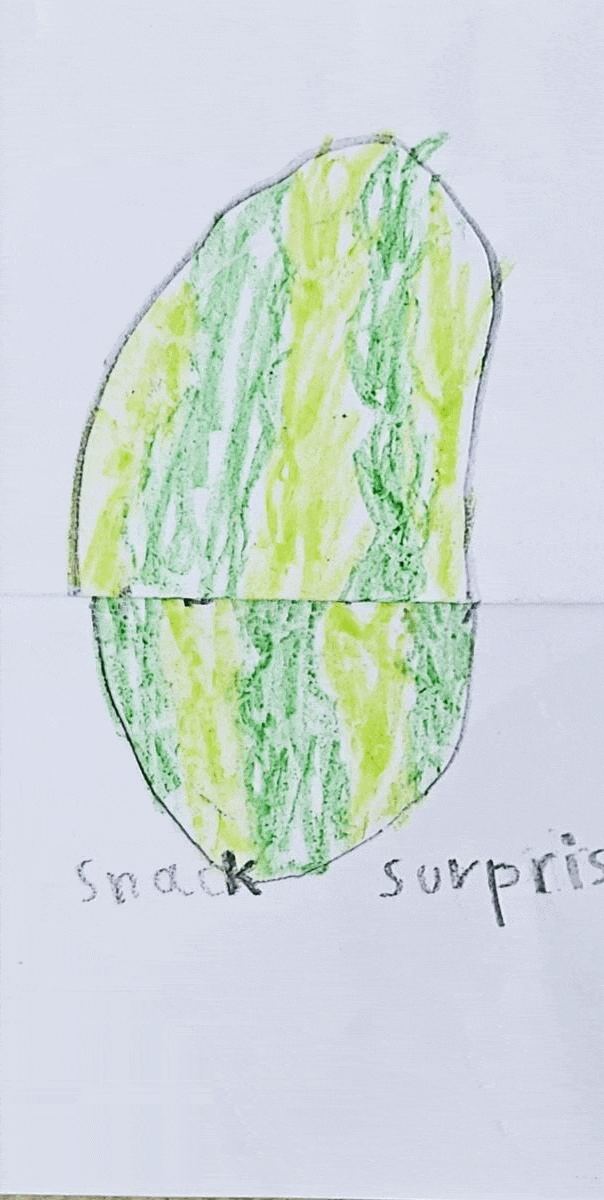 Snack surpris